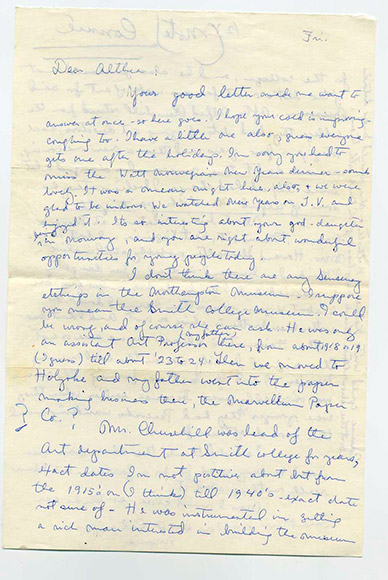 Fri.
Dear Althea
Your good letter made me want to
answer at once - so here goes. I hope your cold is improving -
coughing too. I have a little one also, guess everyone
gets one after the holidays. I'm sorry you had to
miss the Watt Norwegian New Years dinner - sounds
lovely. It was a mean night here, also, & we were
glad to be indoors. We watched New Years on T.V. and
enjoyed it. Its so interesting about your god-daughter
in Norway, and you are right about wonderful
opportunities for young people today.
I don't think there are any
etchings in the Northampton Museum. I suppose
you mean the Smith College Museum. I could
be wrong, and of course, we can ask. He was only
(my father)
an assistant Art Professor there, from about 1918 or 19
(I guess) till about '23 to 24. Then we moved to
Holyoke and my father went into the paper
making business then, the Marvellum Paper
? Co. ?
Mr. Churchill was head of the
Art department at Smith college for years,
exact dates I'm not positive about but from
the 1915's on (I think) till 1940's - exact date
not sure of - He was instrumental in getting
a rich man interested in building the museum